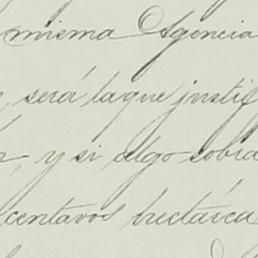 misma Agencia
será la que justif
y si algo sobra
centavos hectárea